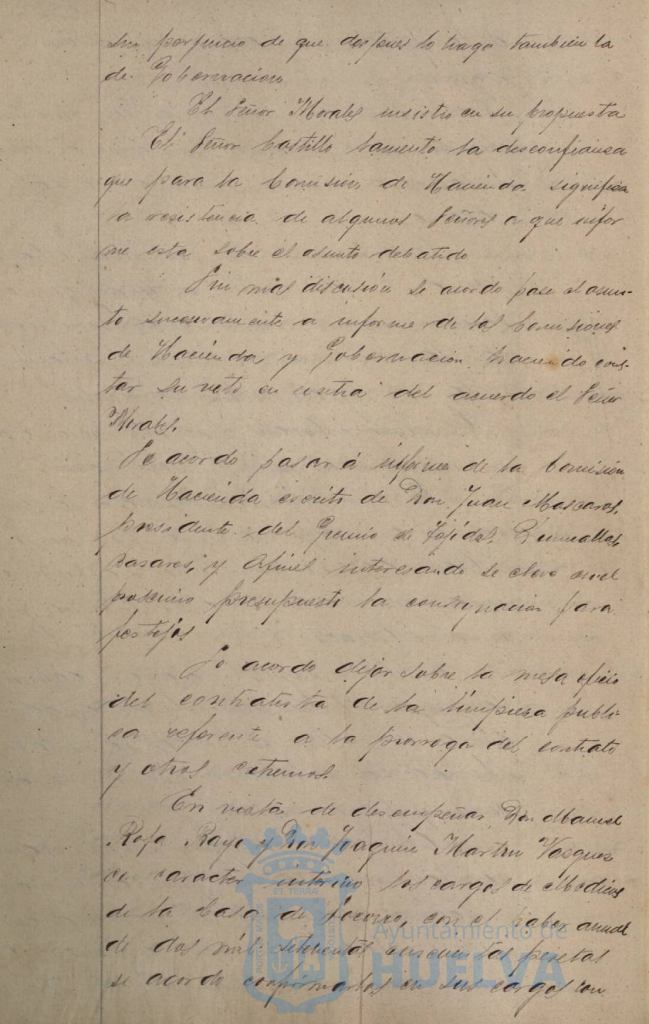 sin perjuicio de que despues lo haga tambien la
de Gobernacion
El Señor Morales insistio en su propuesta
El Señor Castillo lamento la desconfianza
que para la Comision de Hacienda significa
la resistencia de algunos Señores a que infor
me esta sobre el asunto debatido
Sin mas discusión se acordo pase el asun-
to sucesivamente a informe de las Comisiones
de Hacienda y Gobernacion haciendo cons-
tar su voto en contra del acuerdo el Señor
Morales.
Se acordo pasar á informe de la Comisión
de Hacienda escrito de Don Juan Mascaros,
presidente del Gremio de Tejidos,
y afines interesando se eleve en el
proximo presupuesto la consignacion para
festejos
Se acordo dejar sobre la mesa oficio
del contratista de la limpieza publi-
ca referente a la prorroga del contrato
y otros extremos.
En vista de desempeñar Don Manuel
Rofa Rayo y Don Joaquin Martin Vazquez
caracter interino los cargos de Medicos
de la Casa de Socorro, con el haber anual
de dos mil setecientas cincuenta pesetas
se acordo confirmarlos en sus cargos con
Ayuntamiento de
HUELVA